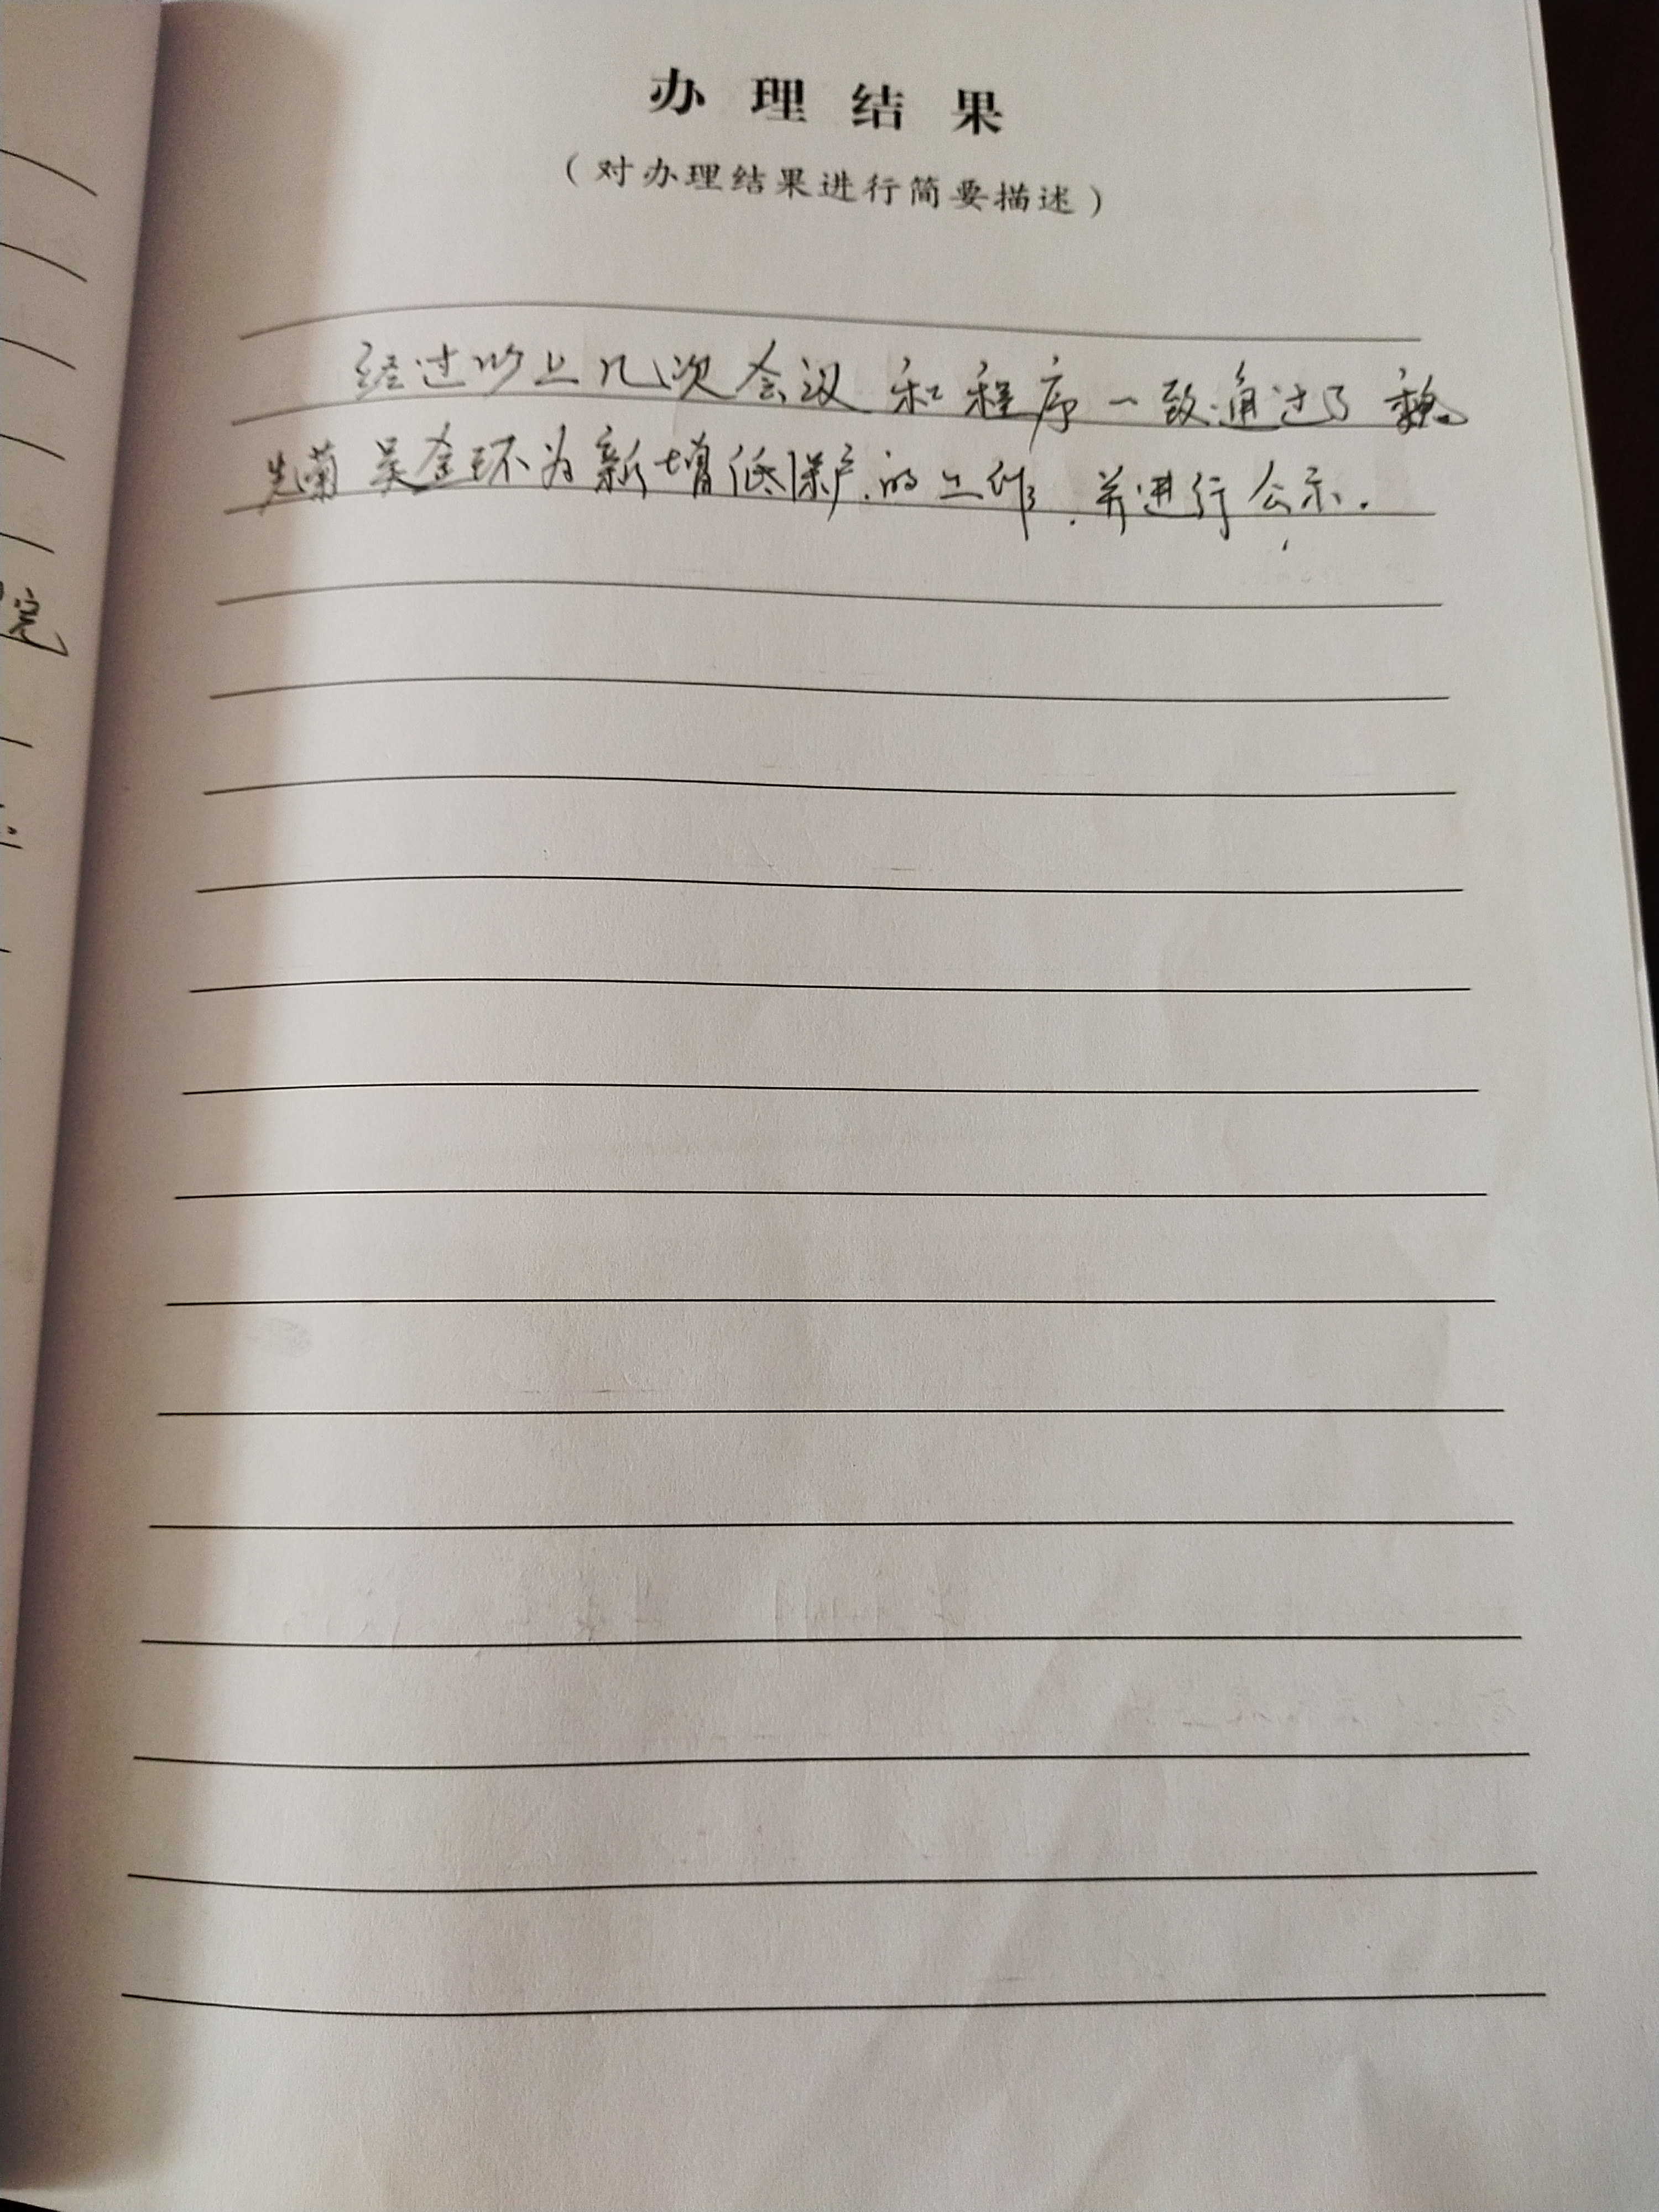 办理结果
（对办理结果进行简要描述）
经过以上几次会议和程序一致通过了魏
先菊吴金环为新增低保户的工作，并进行公示．